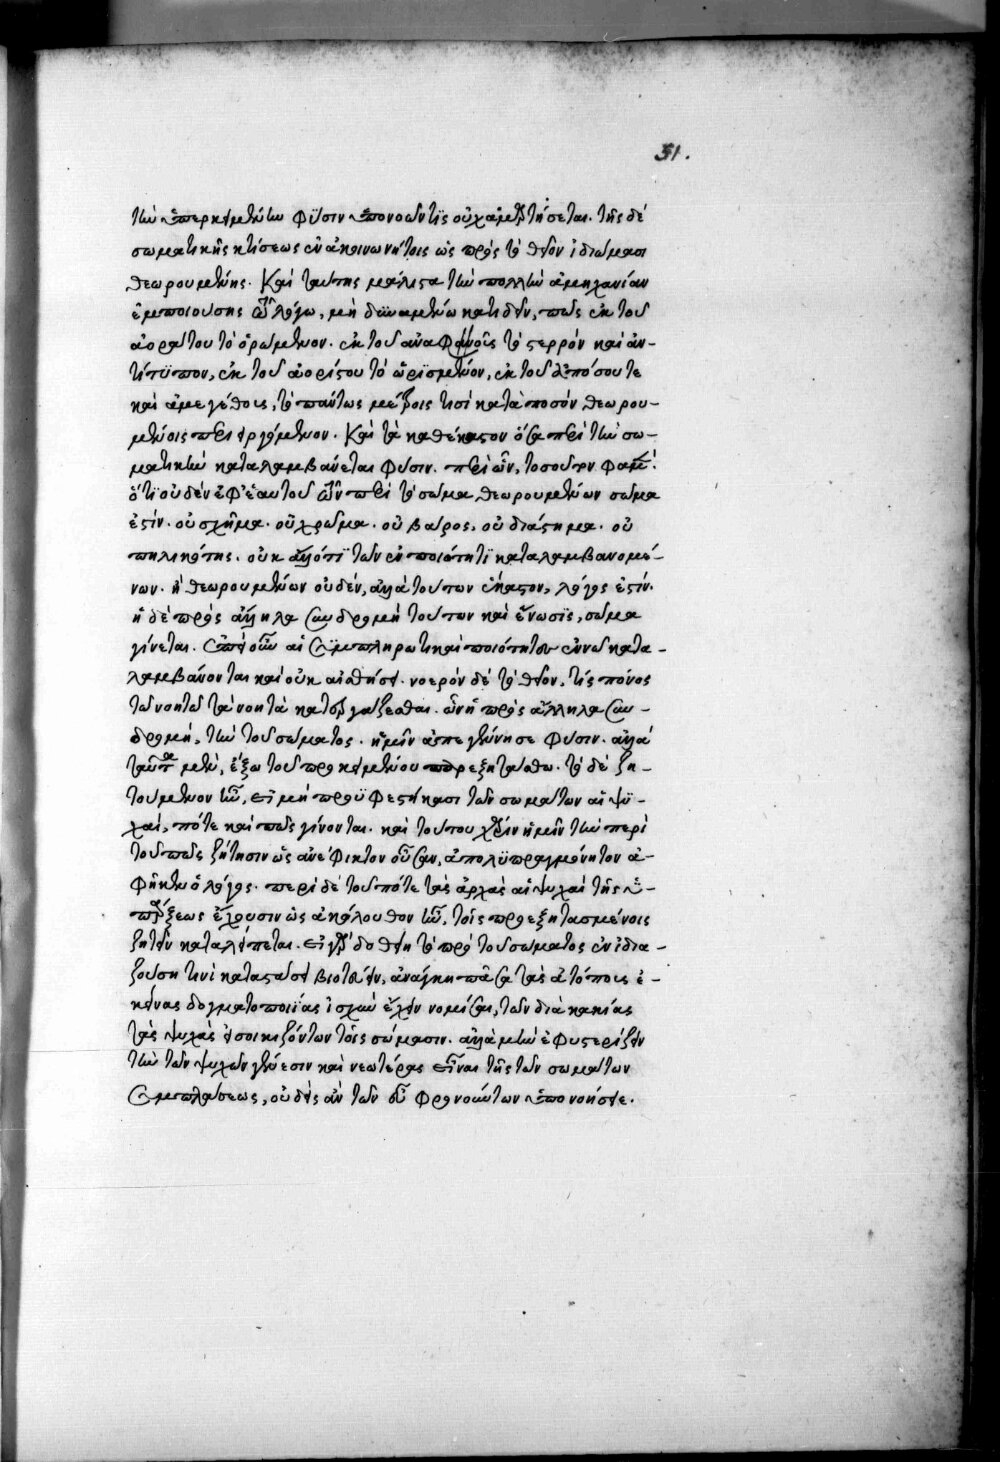 31.
τὴν ὑπερκειμένην φύσιν ὑπονοῶν τὶς οὐχ ἁμαρτήσεται. τῆς δὲ
σωματικῆς κτίσεως ἐν ἀκοινωνήτοις ὡς πρὸς τὸ θεῖον ἰδιώμασι
θεωρουμένης. καὶ ταύτης μάλιστα τὴν πολλὴν ἀμηχανίαν
ἐμποιούσης τῶ λόγω, μὴ δυναμένω κατιδεῖν, πῶς ἐκ τοῦ
ἀοράτου τὸ ὁρώμενον. ἐκ τοῦ ἀναφοῦς τὸ στερρὸν καὶ ἀν-
τίτυπον, ἐκ τοῦ ἀορίστου τὸ ὡρισμένον, ἐκ τοῦ ἀπόσου τε
καὶ ἀμεγέθους, τὸ πάντως μέτροις τισὶ κατὰ ποσὸν θεωρου-
μένοις περιειργόμενον. καὶ τὰ καθέκαστον ὅσα περὶ τὴν σω-
ματικὴν καταλαμβάνεται φύσιν. περὶ ὧν, τοσοῦτον φαμέν.
ὅτι οὐδὲν ἐφ' ἑαυτοῦ τῶν περὶ τὸ σῶμα θεωρουμένων σῶμα
ἐστίν. οὐ σχῆμα. οὐ χρῶμα. οὐ βάρος, οὐ διάστημα. οὐ
πηλικότης. οὐκ ἄλλό τι τῶν ἐν ποιότητι καταλαμβανομέ-
νων. ἢ θεωρουμένων οὐδέν, ἀλλὰ τούτων ἕκαστον, λόγος ἐστίν.
ἡ δὲ πρὸς ἄλληλα συνδρομὴ τούτων καὶ ἕνωσις, σῶμα
γίνεται. ἐπεὶ οὖν αἱ συμπληρωτικαὶ ποιότητες ἐν νῶ κατα-
λαμβάνονται καὶ οὐκ αἰσθήσει. νοερὸν δὲ τὸ θεῖον, τίς πόνος
τῶ νοητῶ τὰ νοητὰ κατεργάζεσθαι. ὧν ἡ πρὸς ἄλληλα συν-
δρομή, τὴν τοῦ σώματος. ἡμῖν ἀπεγέννησε φύσιν. ἀλλὰ
ταῦτα μέν, ἔξω τοῦ προκειμένου προεξητάσθω. τὸ δὲ ζη-
τούμενον ἦν, εἰ μὴ προϋφεστήκασι τῶν σωμάτων αἱ ψυ-
χαί, πότε καὶ πῶς γίνονται. καὶ τούτου χάριν ἡμῖν τὴν περὶ
τοῦ πῶς ζήτησιν ὡς ἀνέφικτον οὖσαν, ἀπολυπραγμόνητον ἀ-
φῆκεν ὁ λόγος. περὶ δὲ τοῦ πότε τὰς ἀρχὰς αἱ ψυχαὶ τῆς ὑ-
πάρξεως ἔχουσιν ὡς ἀκόλουθον ἦν, τοῖς προεξητασμένοις
ζητεῖν καταλείπεται. εἰ γὰρ δοθείη τὸ πρὸ τοῦ σώματος ἐν ἰδια-
ζούση τινὶ καταστάσει βιοτεύειν, ἀνάγκη πᾶσα τὰς ἀτόπους ἐ-
κείνας δογματοποιΐας ἰσχὺν ἔχειν νομίσαι, τῶν διὰ κακίας
τὰς ψυχὰς εἰσοικιζόντων τοῖς σώμασιν. ἀλλὰ μὴν ἐφυστερίζειν
τὴν τῶν ψυχῶν γένεσιν καὶ νεωτέρας εἶναι τῆς τῶν σωμάτων
συμπλάσεως, οὐδεὶς ἂν τῶν εὖ φρονούντων ὑπονοήσειε.